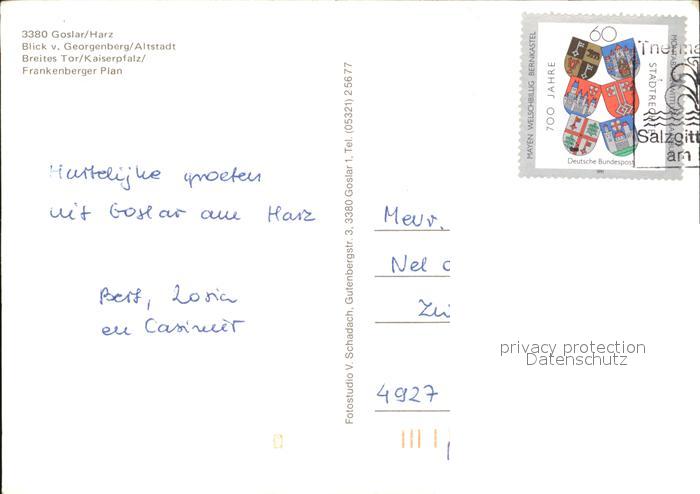 3380 Goslar/Harz
Blick v. Georgenberg/Altstadt
Breites Tor/Kaiserpfalz/
Frankenberger Plan
Hartelijke groeten
uit Goslar am Harz
Bert, Zosia
en Casimir
Fotostudio V. Schadach, Gutenbergstr. 3, 3380 Goslar 1, Tel. (05321) 25677
MAYEN WELSCHBILLIG BERNKASTEL
700 JAHRE
60
STADTRECHTE
Deutsche Bundespost
1991
Therma
Salzgitt
am
Mevr.
Nel
4927
privacy protection
Datenschutz